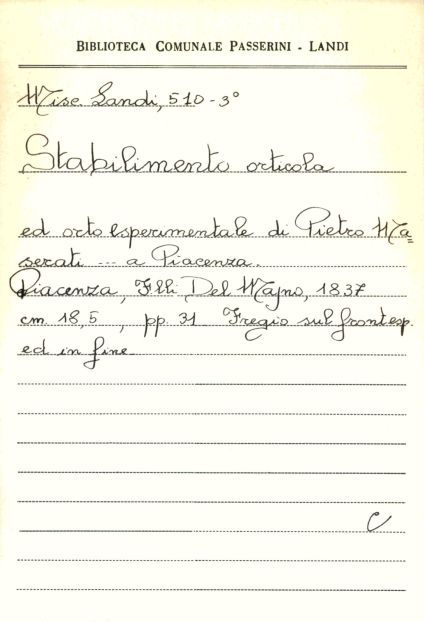 BIBLIOTECA COMUNALE PASSERINI - LANDI
Misc. Landi, 510-3°
Stabilimento orticola
ed orto esperimentale di Pietro Ma=
serati --- a Piacenza.
Piacenza, F.lli Del Majno, 1837
cm. 18,5, pp. 31 Fregio sul frontesp.
ed in fine
C